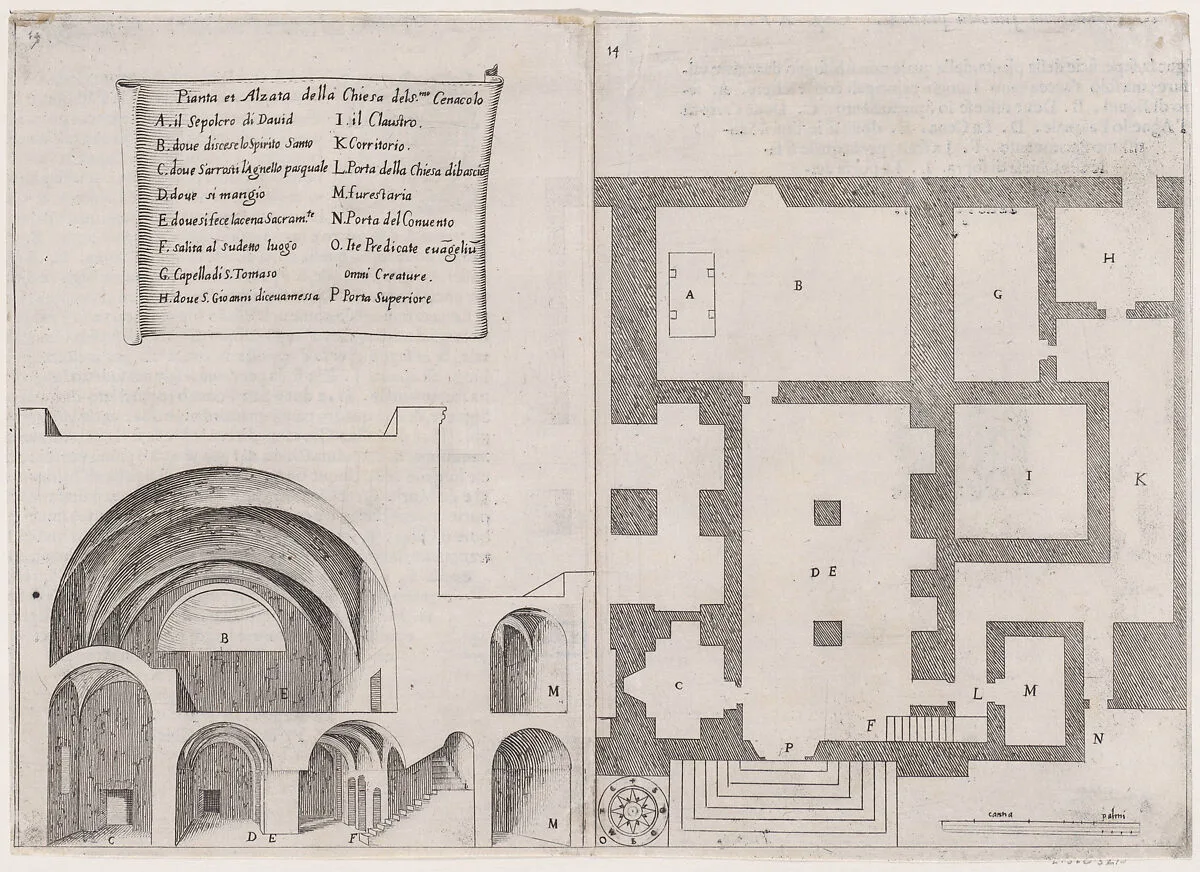 14
Pianta et Alzata della Chiesa dels.mo Cenacolo
A. il Sepolcro di David
B. doue discese lo Spirito Santo
C. doue S'arrosti l'Agnello pasquale
D. doue si mangio
E. doue si fece la cena Sacram.te
F. salita al sudetto luogo
G. Capella di S. Tomaso
H. doue S. Gioanni diceua messa
I. il Claustro.
K Corritorio.
L. Porta della Chiesa dibascio
M. furestaria
N. Porta del Conuento
O. Ite Predicate euāgeliū
omni Creature.
P Porta Superiore
A
B
G
H
I
K
D E
C
L
M
F
N
P
B
E
M
M
C
D E
F
canna palmi